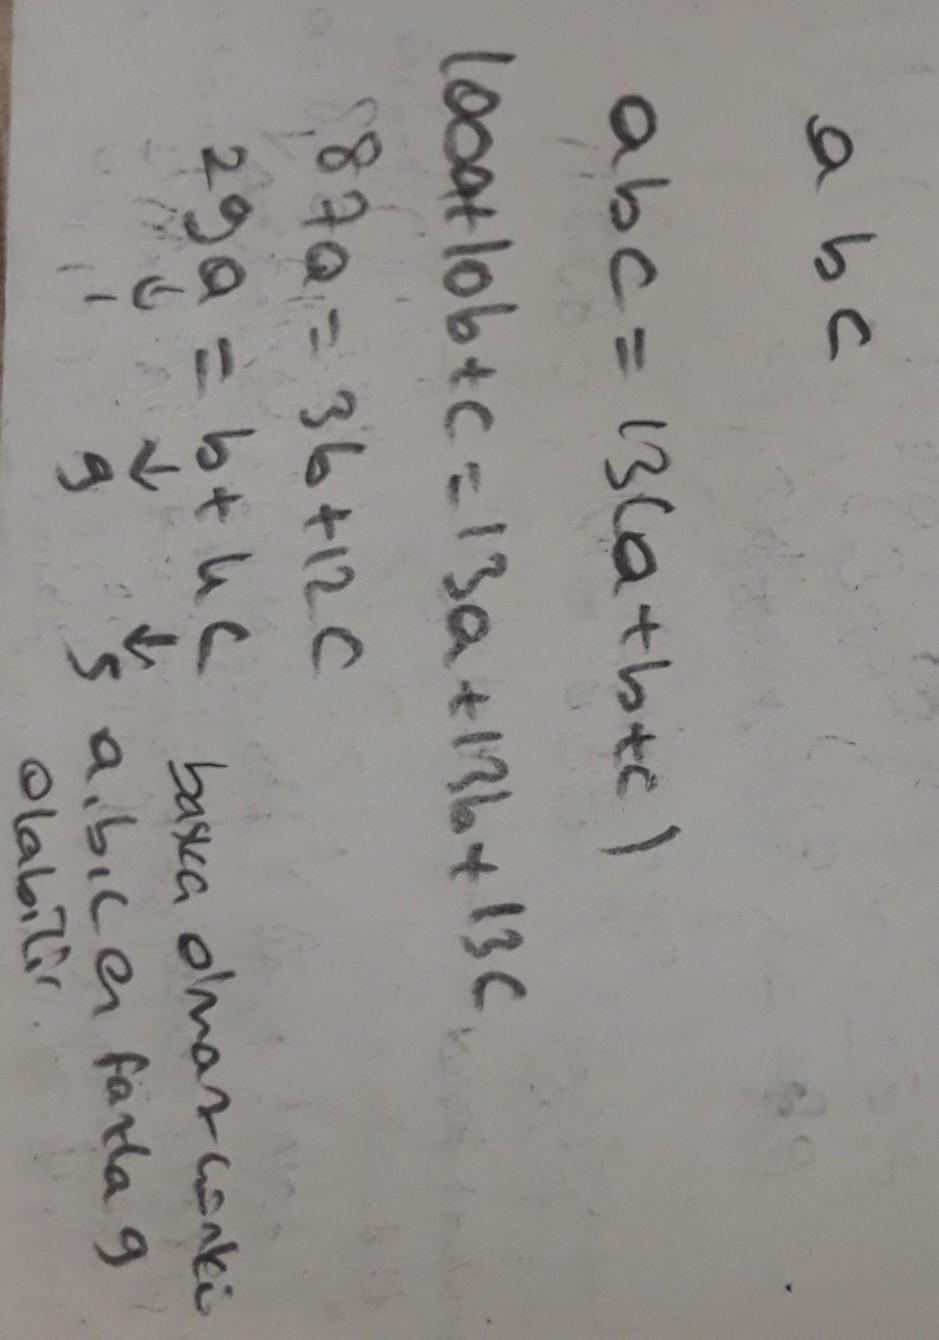 a b c
abc = 13(a+b+c)
100a+10b+c=13a+13b+13c
87a=3b+12c
29a = b+4c başka olmaz çünkü
↓ ↓ ↓
1 9 5 a,b,c en fazla 9
olabilir.